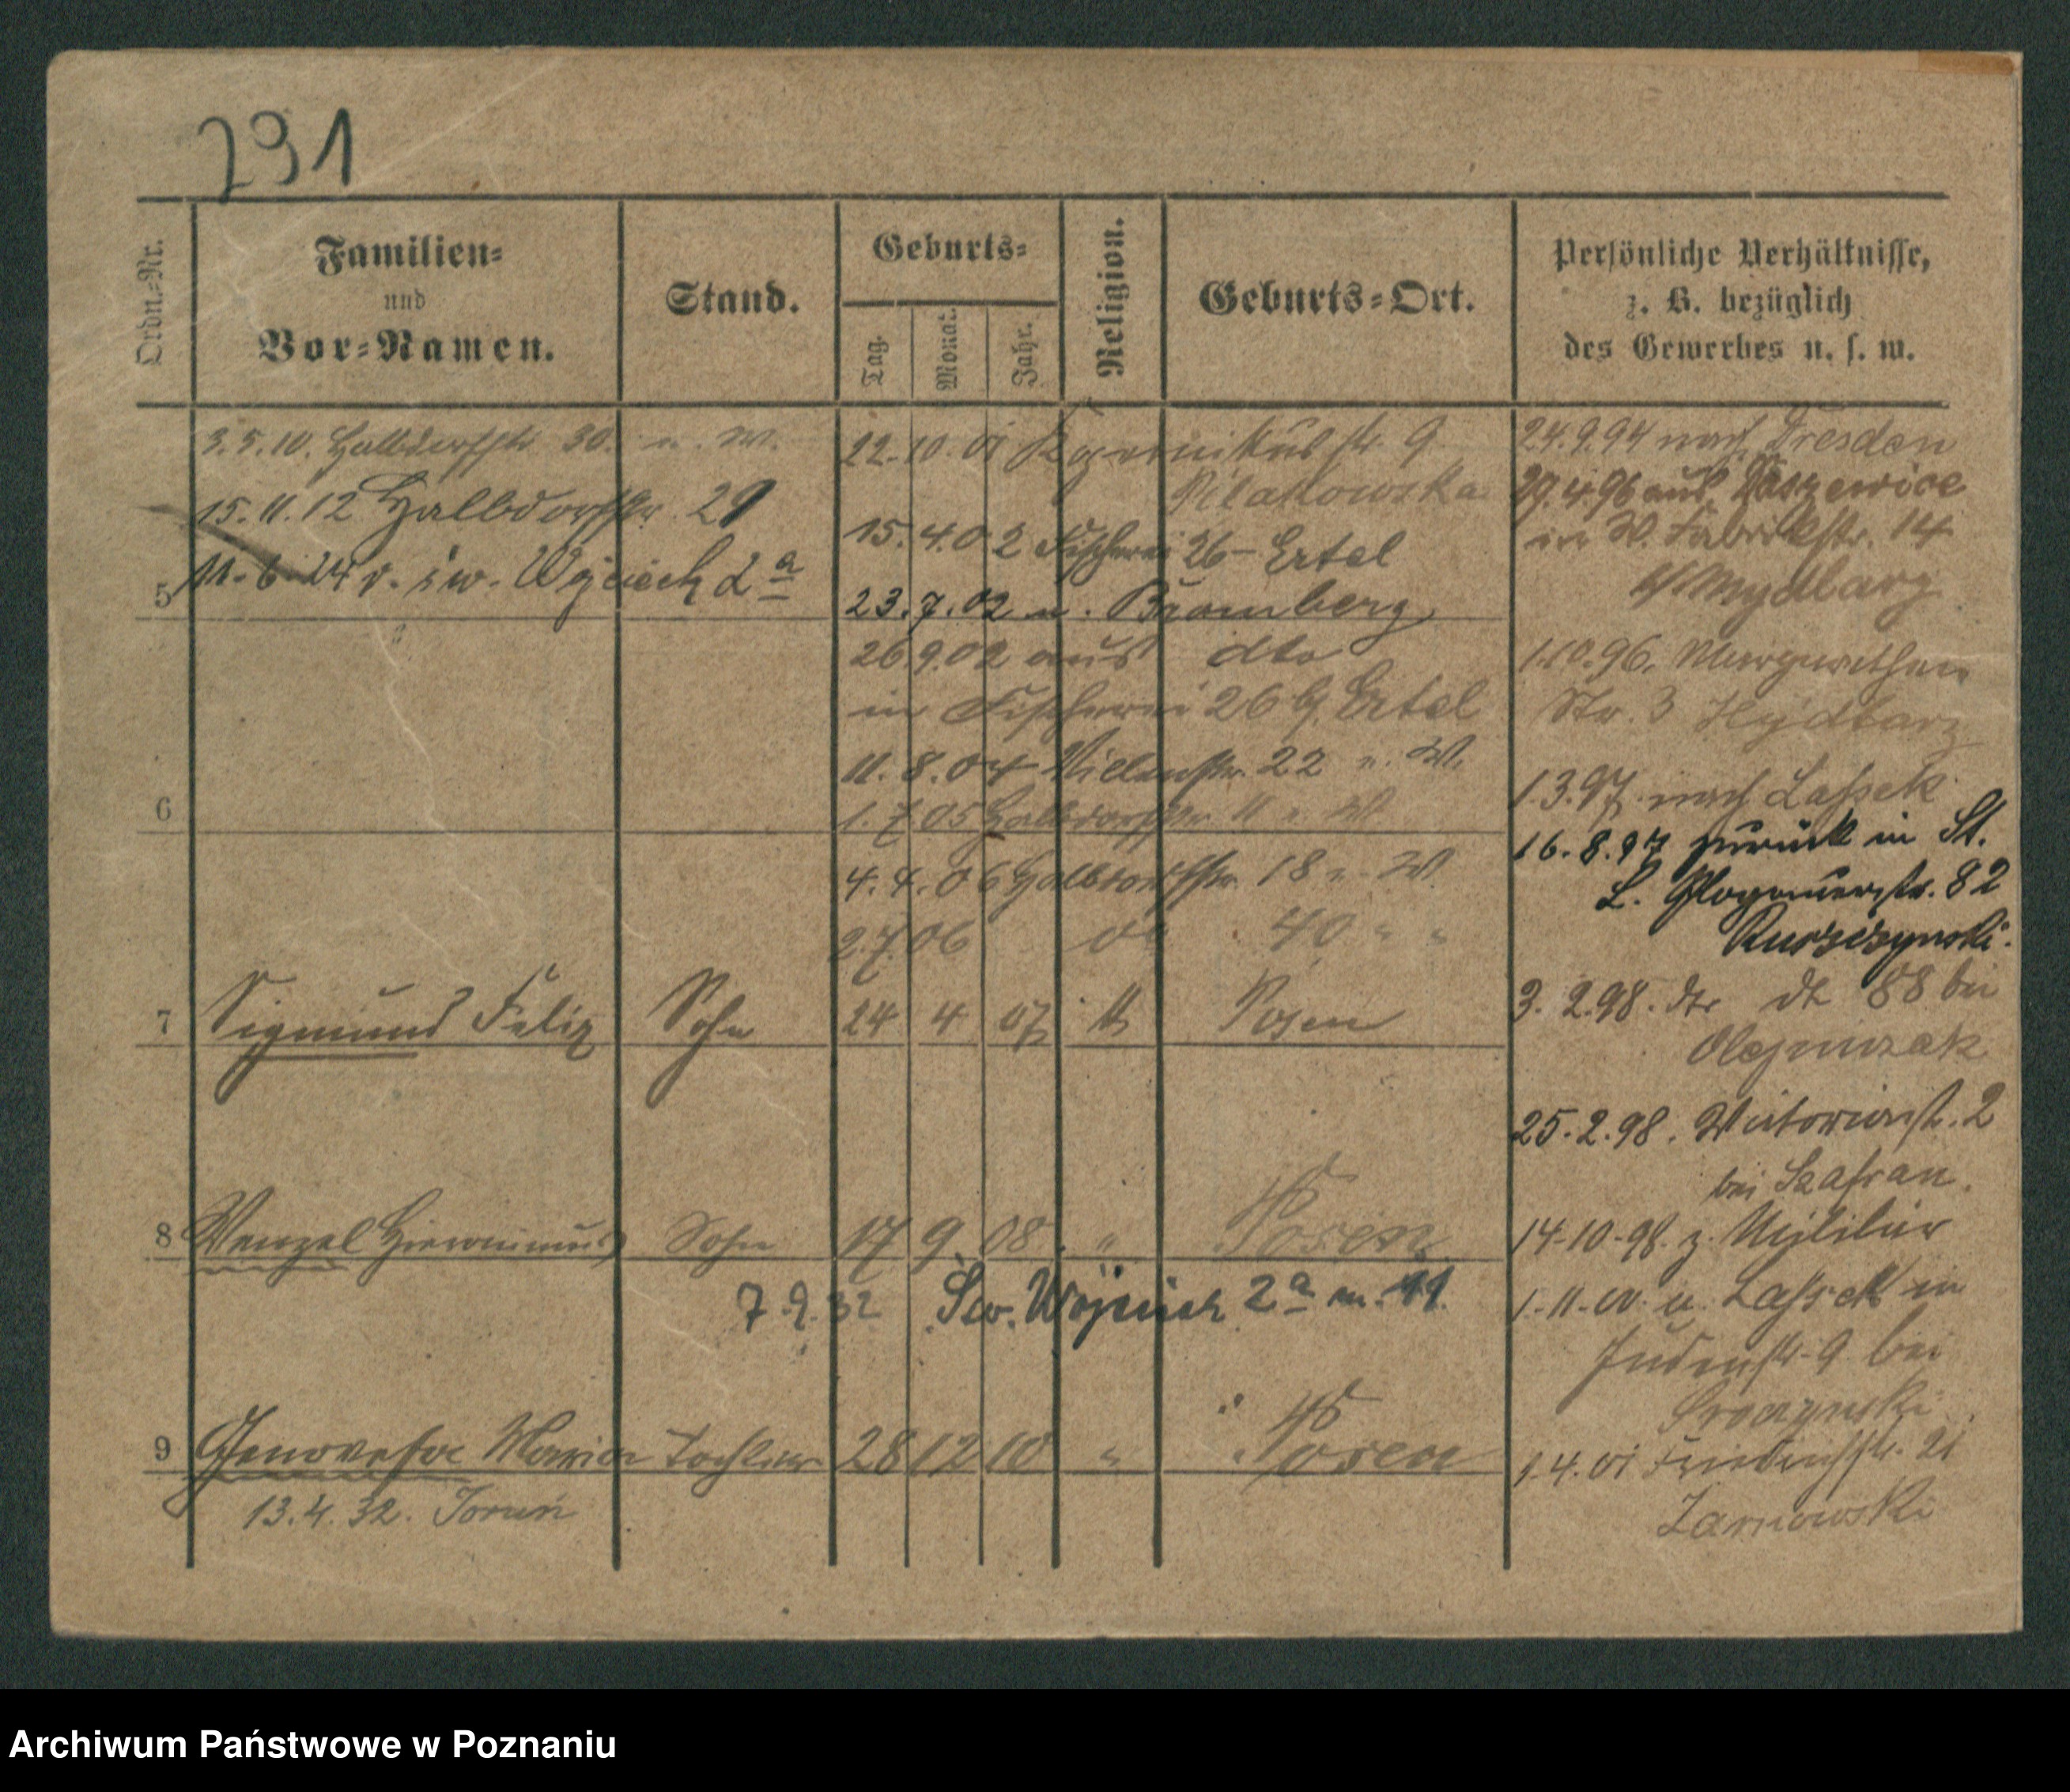 291
Ordn.-Nr.
Familien-
und
Vor-Namen.
Stand.
Geburts-
Tag.
Monat.
Jahr.
Religion.
Geburts-Ort.
Persönliche Verhältnisse,
z. B. bezüglich
des Gewerbes u. s. w.
3.5.10. Halbdorfstr 30. u. W.
15.11.12 Halbdorfstr. 29
11.6.24 v. św. Wojciech 2a
5
22.10.01 Kopernikusstr. 9
15.4.02 Fischerei 26 - Ertel
23.7.02 n. Bromberg
26.9.02 aus dto
in Fischerei 26 b. Ertel
11.8.04 22 u. W.
6
1.7.05 Halbdorfstr. 11 u. W.
4.4.06 Halbdorfstr. 18 u. W.
2.7.06 do 40 " "
7 Sigmund Felix Sohn 24 4 07 Posen
8 Wenzel Hieronimus Sohn 17 9 08 " Posen
7.9.32 Św. Wojciech 2a m. 11.
9 Genovefa Maria Tochter 28 12 10 " Posen
13.4.32. Toruń
24.9.94 nach Dresden
29.4.96 aus
in W. Fabrikstr. 14
1.10.96. Margarethen
Str. 3
1.3.97. nach Lassek
16.8.97 zurück in St.
L. Glogauerstr. 82
3.2.98. dto dt 88 bei
Olejniczak
25.2.98. Viktoriastr. 2
bei Szafran.
14.10.98. z. Militär
1.11.00. a. Lassek in
Judenstr. 9 bei
1.4.01 21
Zarnowski